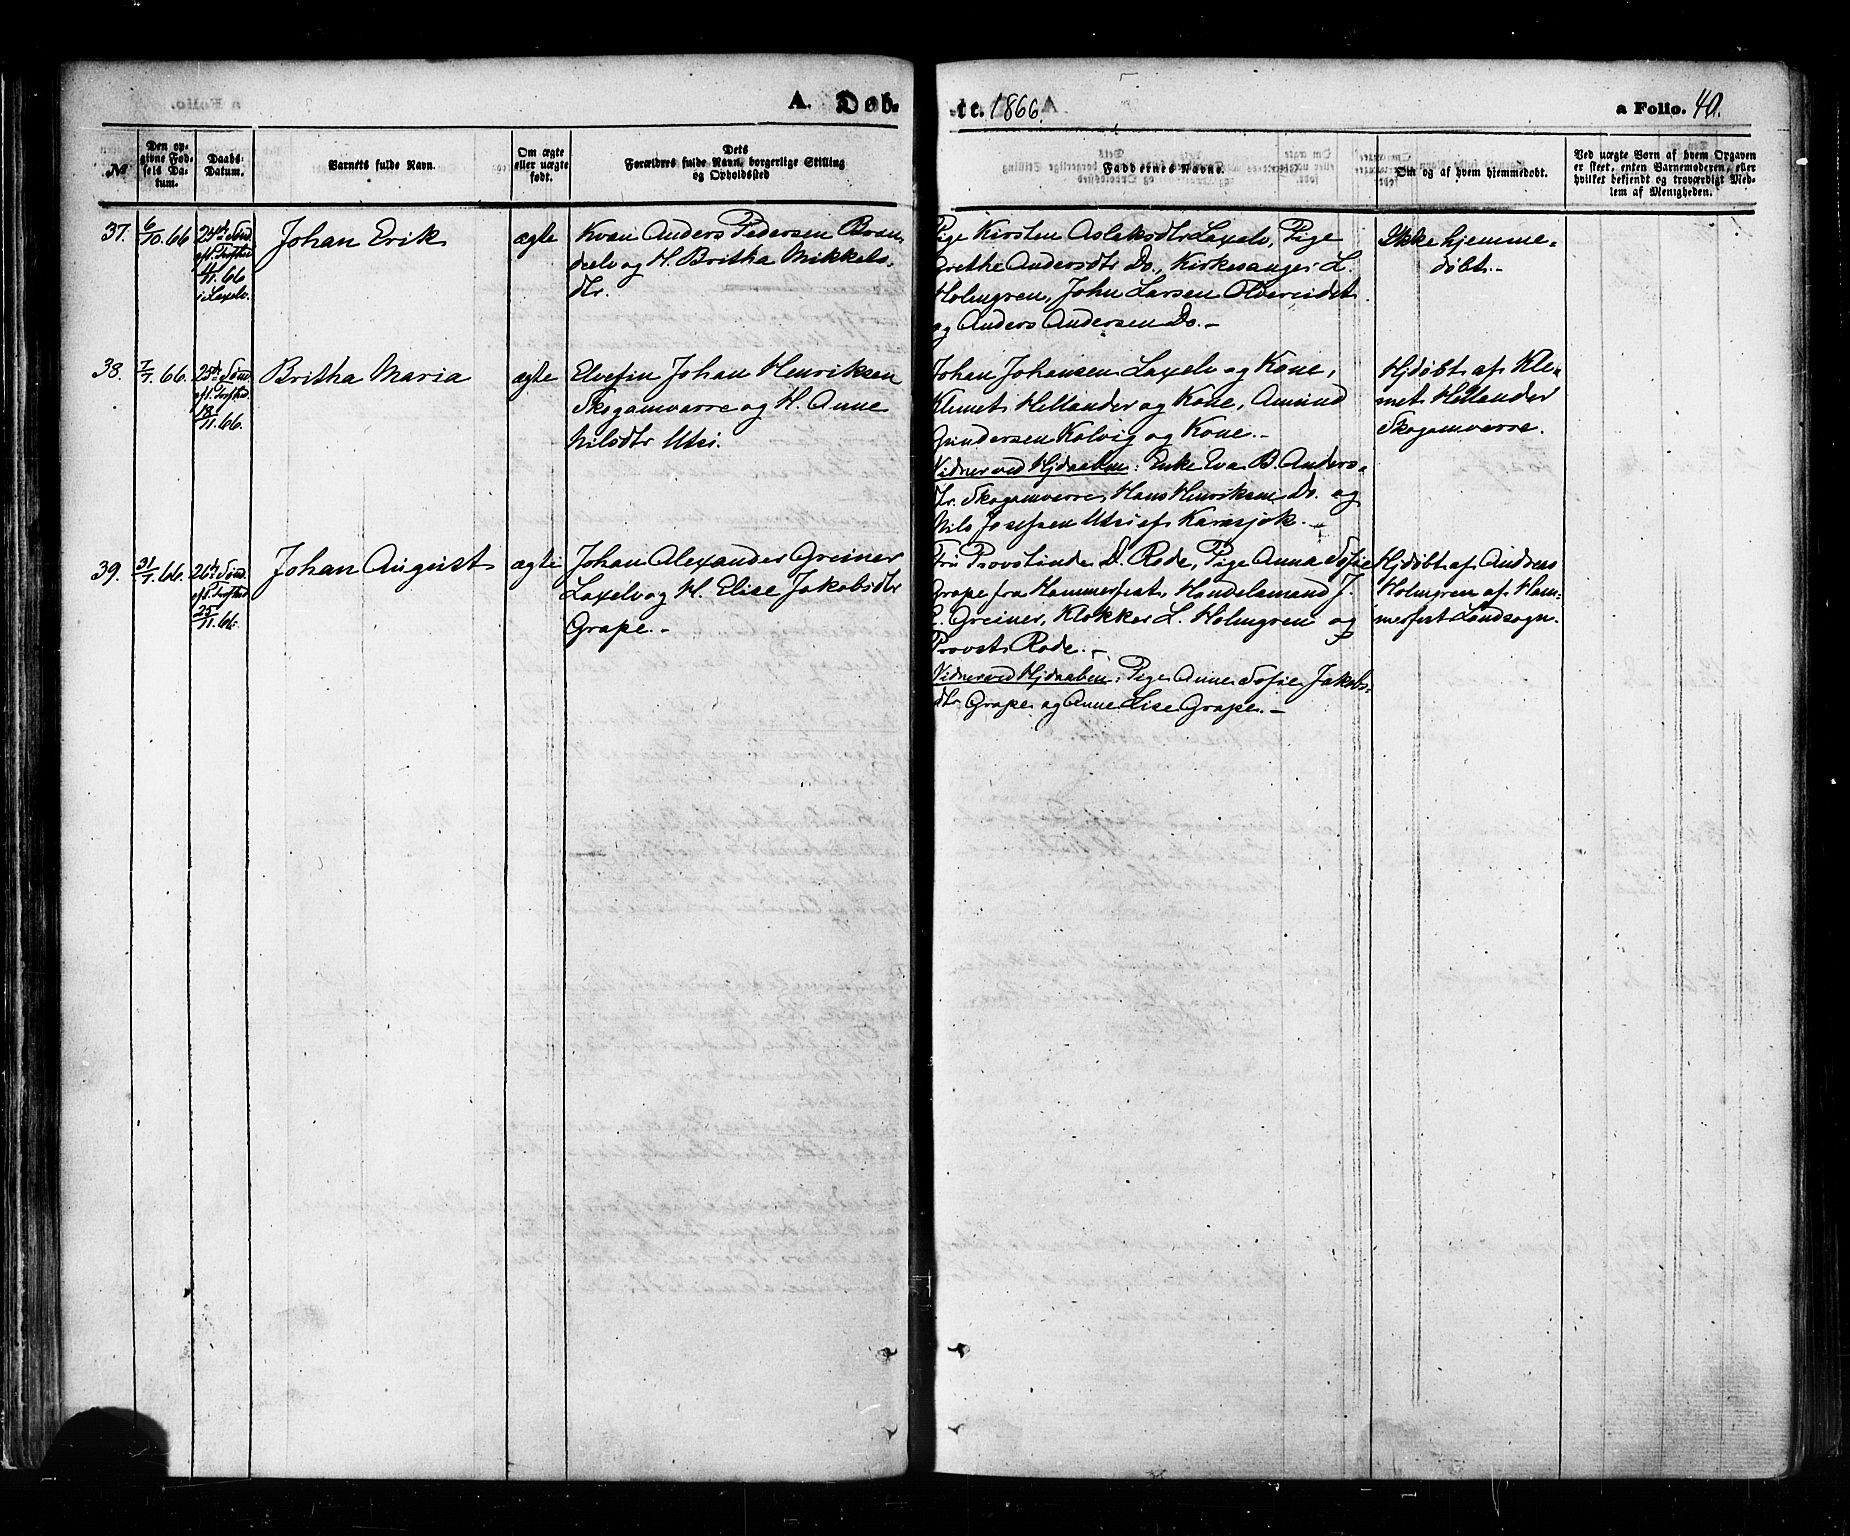 A. Døb-
te. 1866.
a Folio. 40.
No
Den op-
givne Fød-
sels Da-
tum.
Daabs-
Datum.
Barnets fulde Navn.
Om ægte
eller uægte
født.
Dets
Forældres fulde Navn, borgerlige Stilling
og Opholdssted
Faddernes Navne.
Om og af hvem hjemmedøbt.
Ved uægte Børn af hvem Opgaven
er skeet, enten Barnemoderen, eller
hvilket bekjendt og troværdigt Med-
lem af Menigheden.
37.
6/10. 66
Sønd
eft. Trefthed
4/11. 66
i Laxelv.
Johan Erik
ægte
Kvæn Anders Pedersen Bræn
delv og H. Britha Mikkels-
dtr.
Pige Kirsten Aslaksdtr Laxelv, Pige
Grethe Andersdtr Do., Kirkesanger L.
Holmgren, John Larsen Oldereidet
og Anders Andersen Do. -
Ikke hjemme-
døbt. -
38.
7/7. 66.
25de Sønd
eft. Trefthed
18/11. 66.
Britha Maria
ægte
Elvefin Johan Henriksen
Skoganvarre og H. Anne
Nilsdtr Utsi.
Johan Johansen Laxelv og Kone,
Klemet Hellander og Kone, Amund
Gundersen Kolvig og Kone. -
Vidner ved Hjdaaben: Enke Eva B. Anders-
dtr. Skoganvarre, Hans Henriksen Do. og
Nils Josefsen Utsi af Karasjok. -
Hjdøbt af Kle-
met Hellander
Skoganvarre.
39.
31/7. 66.
26de Sønd
eft. Trefthed
25/11. 66.
Johan August
ægte
Johan Alexander Greiner
Laxelv og H. Elise Jakobsdtr
Grape. -
Fru Provstinde D. Rode, Pige Anna Sofie
Grape fra Hammerfest, Handelsmand J.
E. Greiner, Klokker L. Holmgren og
Provst Rode. -
Vidner ved Hjdaaben: Pige Anne Sofie Jakobs-
dtr Grape og Anne Lise Grape. -
Hjdøbt af Andreas
Holmgren af Ham-
merfest Landsogn.